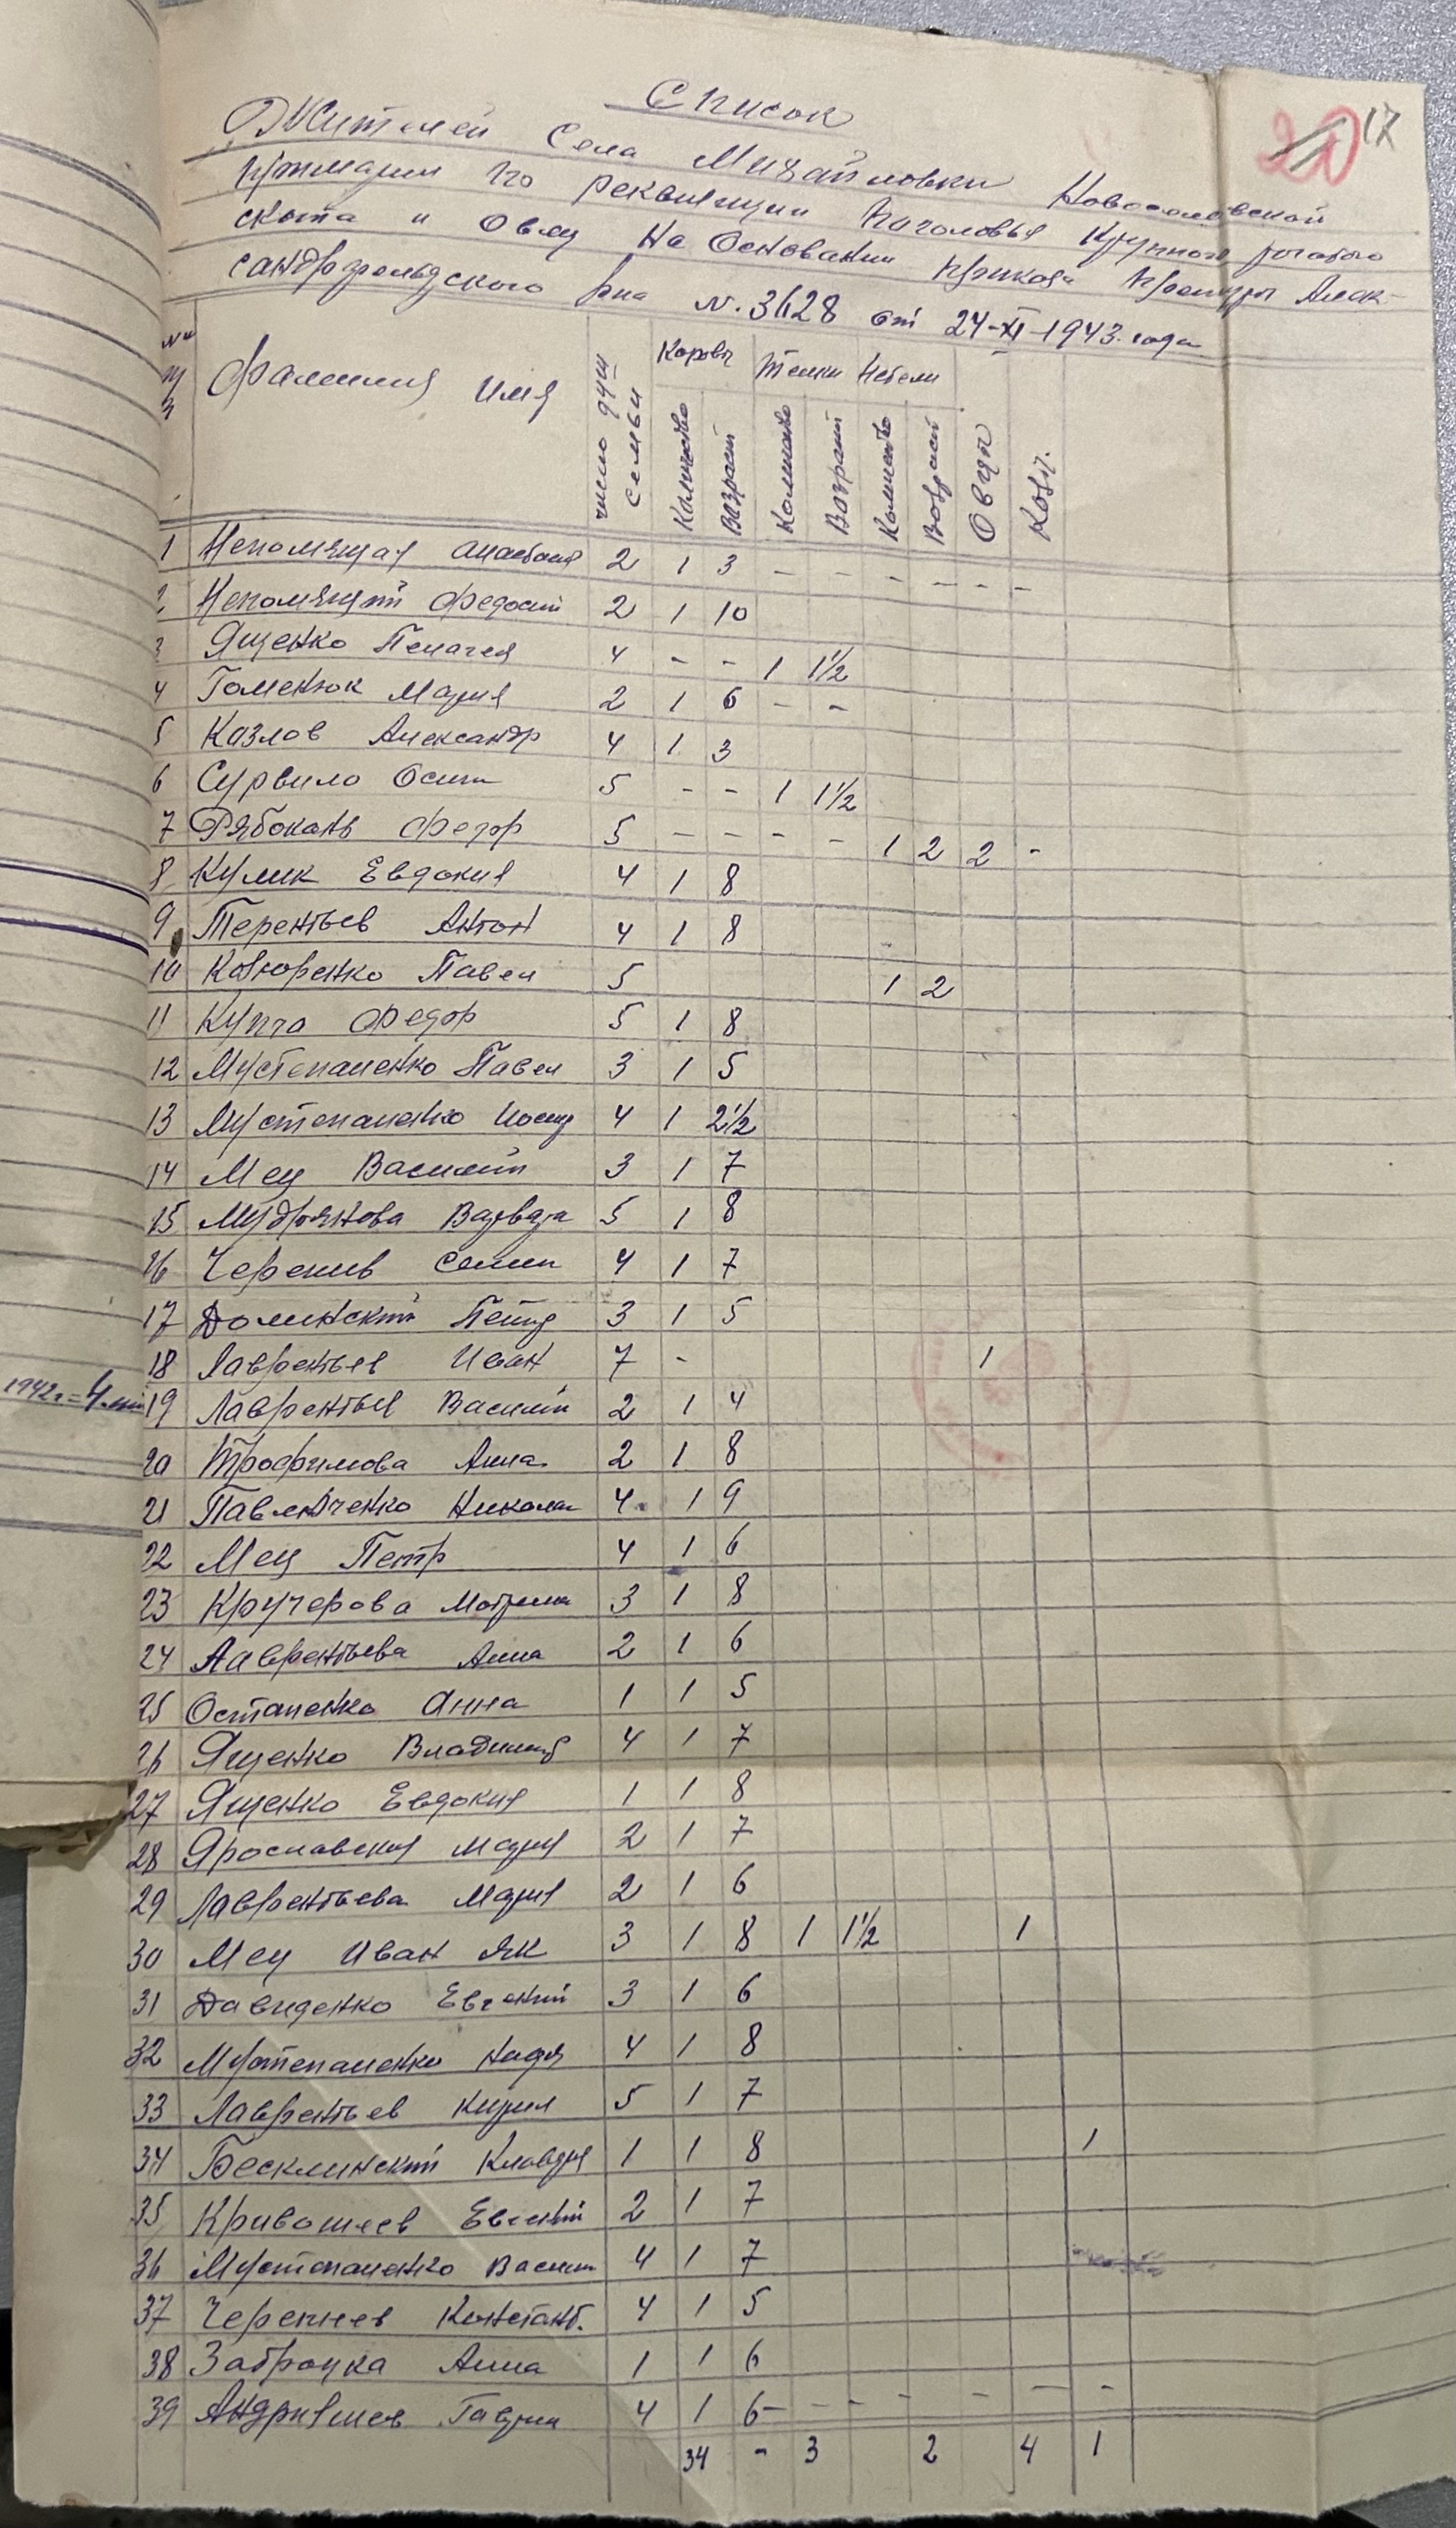 20 17
Список
Жителей Села Михайловки Новосоловской
Примарии по реквизиции Поголовья Крупного рогатого
скота и Овец На Основании Приказа Претуры Алек-
сандрфельдского рна N. 3628 от 24-XI-1943. года
Фамилия Имя число душ семьи Коровы Телки Нетели Овцы Козы
Количество Возраст Количество Возраст Количество Возраст
1 Непомящая Анастасия 2 1 3 - - - - - -
2 Непомящий Федосий 2 1 10
3 Ященко Пелагея 4 - - 1 1½
4 Гоменюк Мария 2 1 6 - -
5 Казлов Александр 4 1 3
6 Сурвило Осип 5 - - 1 1½
7 Рябоконь Федор 5 - - - - 1 2 2 -
8 Кулик Евдокия 4 1 8
9 Терентьев Антон 4 1 8
10 Павел 5 1 2
11 Купча Федор 5 1 8
12 Мустепаненко Павел 3 1 5
13 Мустепаненко Иосиф 4 1 2½
14 Мец Василий 3 1 7
15 Мудрянова Варвара 5 1 8
16 Семен 4 1 7
17 Долинский Петр 3 1 5
18 Лаврентьев Иван 7 - 1
1942г.=4. 19 Лаврентьев Василий 2 1 4
20 Трофимова Анна 2 1 8
21 Павличенко Николай 4 1 9
22 Мец Петр 4 1 6
23 Кручерова Матрена 3 1 8
24 Лаврентьева Анна 2 1 6
25 Остапенко Анна 1 1 5
26 Ященко Владимир 4 1 7
27 Ященко Евдокия 1 1 8
28 Ярославская Мария 2 1 7
29 Лаврентьева Мария 2 1 6
30 Мец Иван Як 3 1 8 1 1½ 1
31 Давиденко Евгений 3 1 6
32 Мустепаненко Надя 4 1 8
33 Лаврентьев Кирил 5 1 7
34 Бесклинский Клавдия 1 1 8 1
35 Кривошеев Евгений 2 1 7
36 Мустепаненко Васил 4 1 7
37 Черепнев Констант. 4 1 5
38 Заброцка Анна 1 1 6
39 Андрияшев Гаврил 4 1 6 - - - - - - -
34 - 3 2 4 1